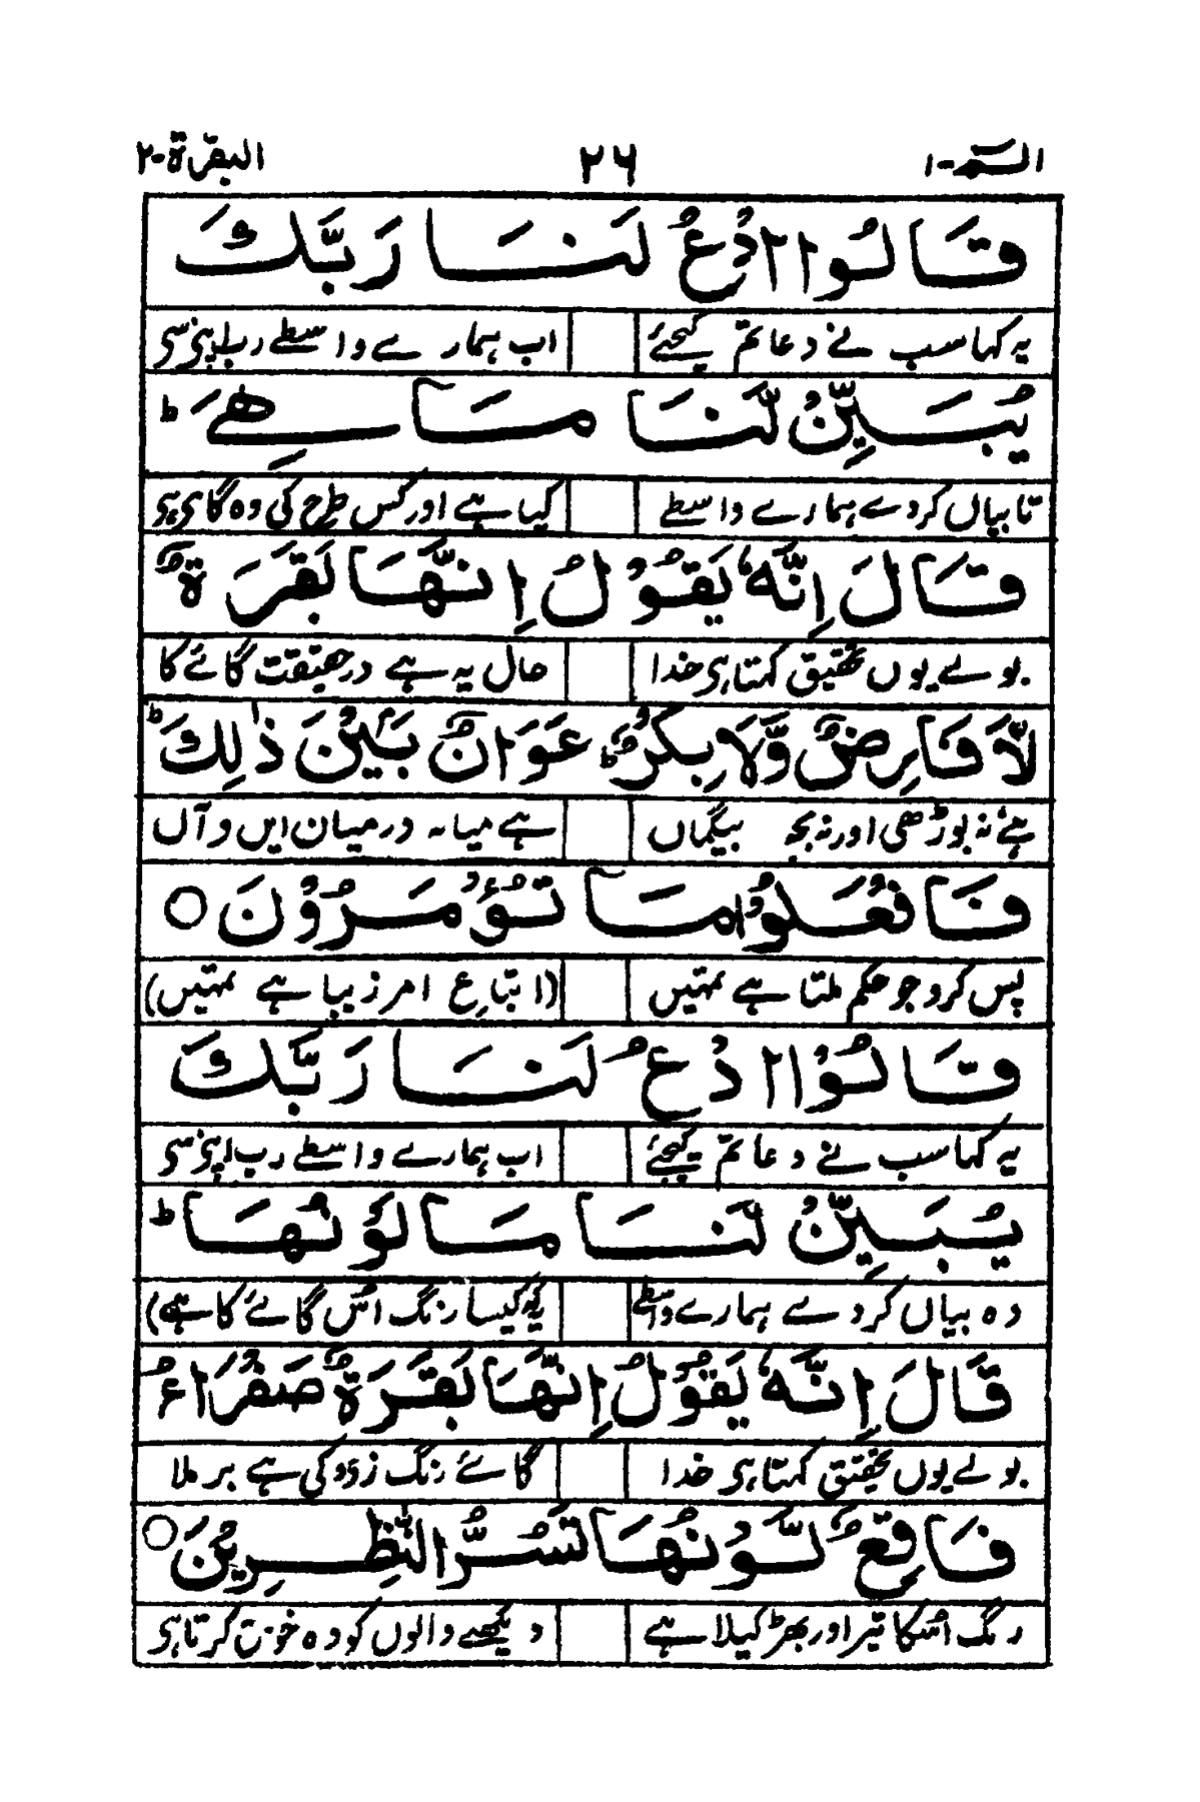 الٓمّٓ-۱ ۲۶ البقرة-۲
قَالُوا ادْعُ لَنَا رَبَّكَ
یہ کہا سب نے دعا تم کیجئے اب ہمارے واسطے رب اپنے سے
يُبَيِّنْ لَّنَا مَا هِيَ ؕ
تا بیاں کردے ہمارے واسطے کیا ہے اور کس طرح کی وہ گائے ہے
قَالَ اِنَّهٗ يَقُوْلُ اِنَّهَا بَقَرَةٌ
بولے یوں تحقیق کہتا ہے خدا حال یہ ہے درحقیقت گائے کا
لَّا فَارِضٌ وَّلَا بِكْرٌ ؕ عَوَانٌ بَيْنَ ذٰلِكَ ؕ
ہے نہ بوڑھی اور نہ بچہ بیگماں ہے میانہ درمیان ایں و آں
فَافْعَلُوْا مَا تُؤْمَرُوْنَ ○
پس کرو جو حکم ملتا ہے تمہیں (اتباع امر زیبا ہے تمہیں)
قَالُوا ادْعُ لَنَا رَبَّكَ
یہ کہا سب نے دعا تم کیجئے اب ہمارے واسطے رب اپنے سے
يُبَيِّنْ لَّنَا مَا لَوْنُهَا ؕ
وہ بیاں کردے ہمارے واسطے (کہ کیسا رنگ اس گائے کا ہے)
قَالَ اِنَّهٗ يَقُوْلُ اِنَّهَا بَقَرَةٌ صَفْرَآءُ
بولے یوں تحقیق کہتا ہے خدا گائے رنگ زرد کی ہے برملا
فَاقِعٌ لَّوْنُهَا تَسُرُّ النّٰظِرِيْنَ ○
رنگ اس کا تیز اور بھڑکیلا ہے دیکھنے والوں کو وہ خوش کرتا ہے